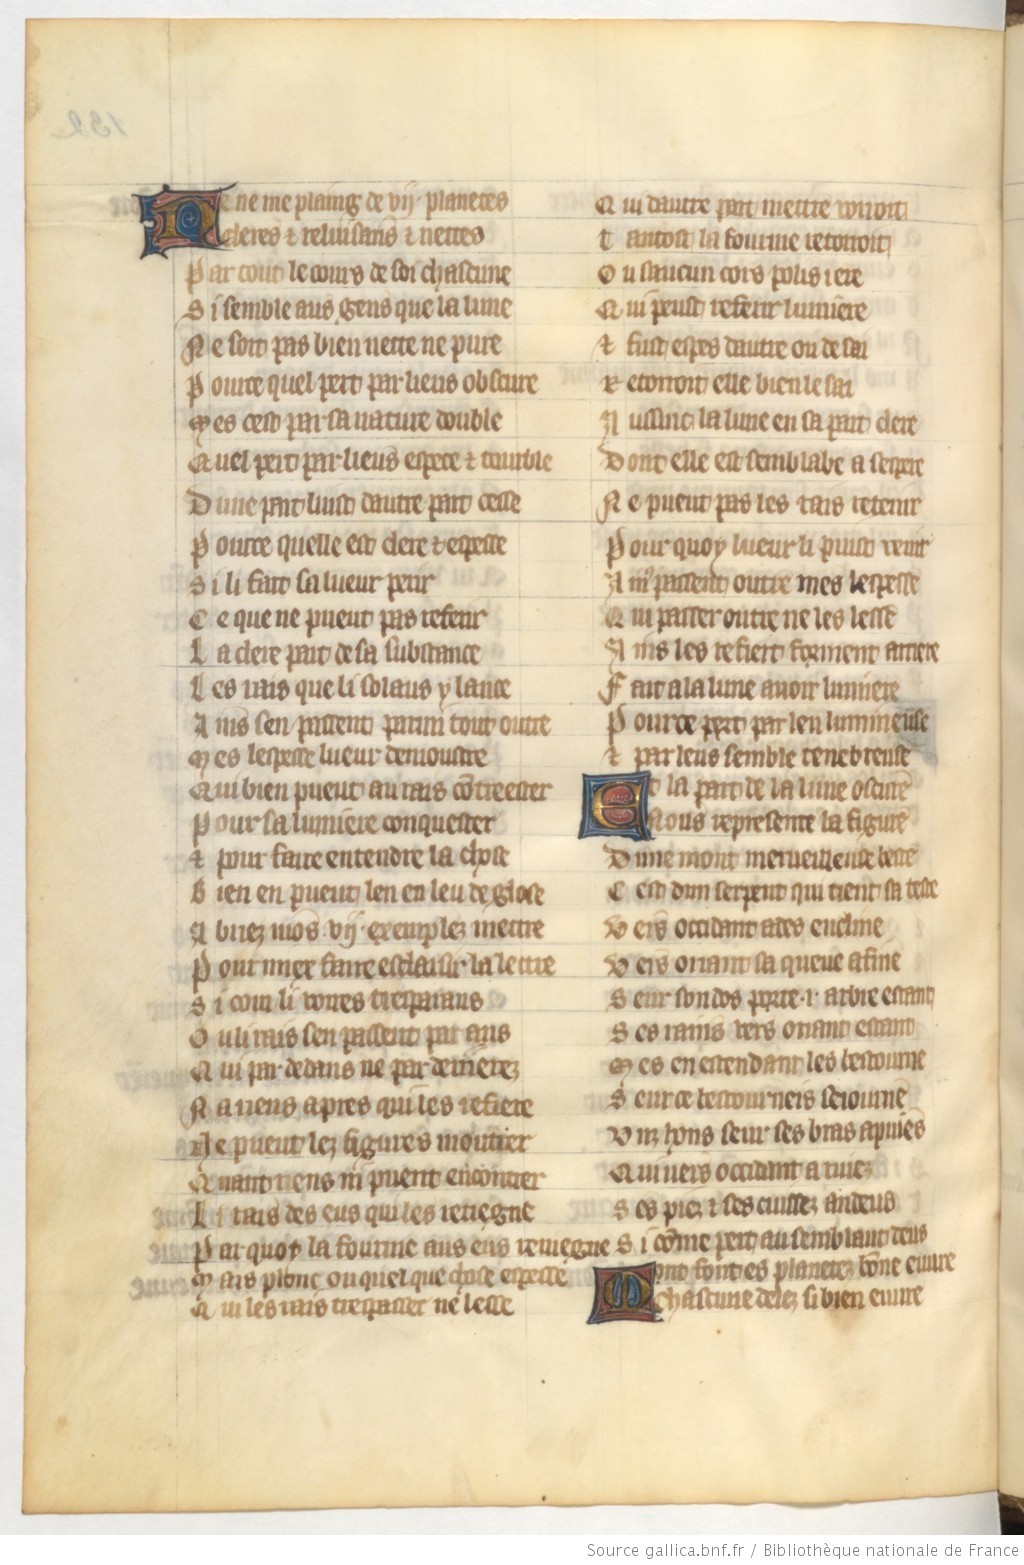 Ne ne me plaing de vij. planetes
cleres ⁊ reluisans ⁊ nettes
Par tout le cours de soi chascune
Si semble aus gens que la lune
Ne soit pas bien nette ne pure
Pource quel pert par lieus obscure
Mes cest par sa nature double
Quel pert par lieus espece ⁊ tourble
Dune part luist dautre part cesse
Pource quelle est clere ⁊ espesse
Si li fait sa lueur perir
Ce que ne pueut pas referir
La clere part de sa substance
Les rais que li solaus y lance
Ains sen passent parmi tout outre
Mes lespesse lueur demoustre
Qui bien pueut au rais cōtreester
Pour sa lumiere conquester
⁊ pour faire entendre la chose
Bien en pueut len en leu de glose
A briez mos .vij. exemplez mettre
Pour miex faire esclarsir la lettre
Si com li voires tresparans
Ou li rais sen passent par ans
Qui par dedans ne par derrierez
Na riens apres qui les refiere
Ne pueut lez figures moutrer
Quant riens ni pueut encontrer
Li rais des eus qui les retiegne
Par quoy la fourme aus eus reviegne
Mais plonc ou quel que chose espesse
Qui les rais trespasser ne lesse
Qui dautre part mettre voiroit
Tantost la fourme retorroit
Ou saucun cors polis i ere
Qui peust referir lumiere
⁊ fust espes dautre ou de sai
Retorroit elle bien le sai
Aussinc la lune en sa part clere
Dont elle est semblabe a sespere
Ne pueut pas les rais retenir
Pour quoy lueur li puist venir
Ains passent outre mes lespesse
Qui passer outre ne les lesse
Ains les refiert forment arriere
Fait a la lune avoir lumiere
Pource pert par leu lumineuse
⁊ par leus semble tenebreuse
Et la part de la lune oscure
Nous represente la figure
Dune mont merveilleuse beste
Cest dun serpent qui tient sa teste
Vers occidant ades encline
Vers oriant sa queue afine
Seur son dos porte .i. arbre estant
Ses rains vers oriant estant
Mes en estendant les bestourne
Seur ce bestourneis seiourne
Vnz hons seur ses bras apuies
Qui vers occidant a ruiez
Ses piez ⁊ ses cuissez andeus
Si cōme pert au semblant deus
Mont font es planetez bōne euure
chascune delez si bien euure